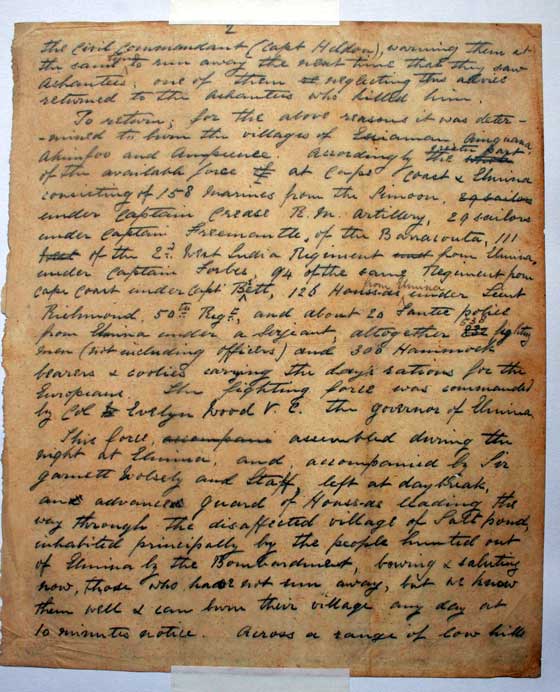 2
the Civil Commandant (Capt Heldon), warning them at
the same to run away the next time that they saw
Ashantees; one of them neglecting this advice
returned to the Ashantees who killed him.
To return; for the above reasons it was deter-
-mined to burn the villages of Essiaman Amquana
Akimfoo and Ampeenee. Accordingly the greater part
of the available force at Cape Coast & Elmina
consisting of 158 Marines from the Simoon, 29 sailors
under Captain Crease R.M. Artillery, 29 sailors
under Captain Freemantle, of the Barracouta, 111
of the 2nd West India Regiment from Elmina,
under Captain Forbes, 94 of the same Regiment from
Cape Coast under Capt Beth, 126 Houssas from Elmina under Lieut
Richmond, 50th Regt, and about 20 Fantee police
from Elmina under a Sergeant, altogether fighting
men (not including officers) and 300 Hammock
bearers & coolies carrying the day's rations for the
Europeans. The fighting force was commanded
by Col Evelyn Wood V.C. the governor of Elmina
This force, accompani assembled during the
night at Elmina, and, accompanied by Sir
Garnett Wolsely and Staff, left at daybreak,
an advanced guard of Houssas leading the
way through the disaffected village of Salt pond,
inhabited principally by the people hunted out
of Elmina by the Bombardment, bowing & saluting
now, those who had not run away, but we know
them well & can burn their village any day at
10 minutes notice. Across a range of low hills